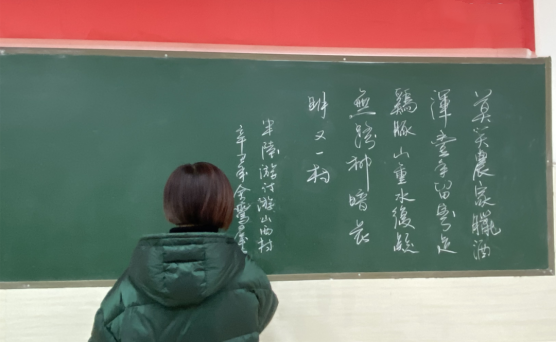 莫笑農家臘酒
渾豐年留客足
鷄豚山重水復疑
無路柳暗花
明又一村
宋陸游诗遊山西村
辛丑年